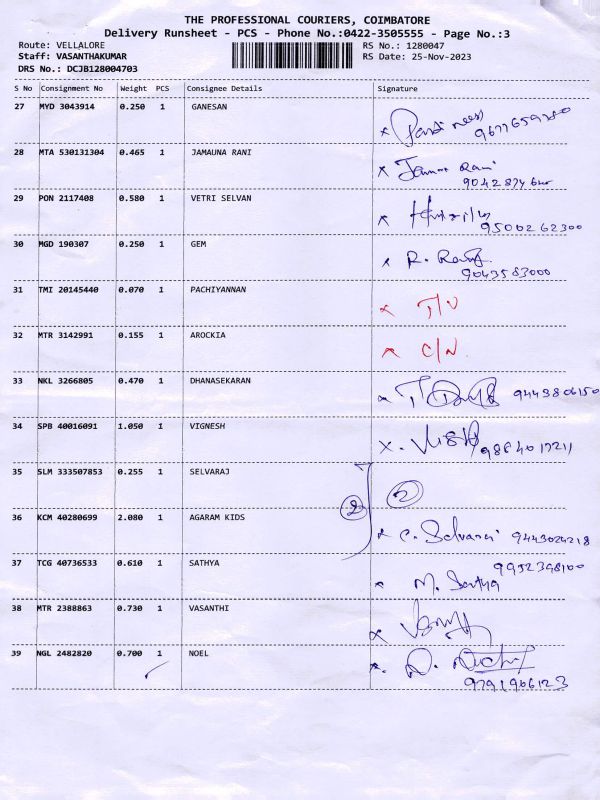 THE PROFESSIONAL COURIERS, COIMBATORE
Delivery Runsheet - PCS - Phone No.:0422-3505555 - Page No.:3
Route: VELLALORE RS No.: 1280047
Staff: VASANTHAKUMAR RS Date: 25-Nov-2023
DRS No.: DCJB128004703
S No Consignment No Weight PCS Consignee Details Signature
27 MYD 3043914 0.250 1 GANESAN
28 MTA 530131304 0.465 1 JAMAUNA RANI
x Jamuna Rani
29 PON 2117408 0.580 1 VETRI SELVAN
x
9500262300
30 MGD 190307 0.250 1 GEM
x R.
9043583000
31 TMI 20145440 0.070 1 PACHIYANNAN
x
32 MTR 3142991 0.155 1 AROCKIA
x C/N
33 NKL 3266805 0.470 1 DHANASEKARAN
x 9443806150
34 SPB 40016091 1.050 1 VIGNESH
x.
35 SLM 333507853 0.255 1 SELVARAJ
2 2
36 KCM 40280699 2.080 1 AGARAM KIDS
x C. Selvaraj 9443024218
37 TCG 40736533 0.610 1 SATHYA
9952398100
x M. Sathya
38 MTR 2388863 0.730 1 VASANTHI
x
39 NGL 2482820 0.700 1 NOEL
x. D.
9791906123